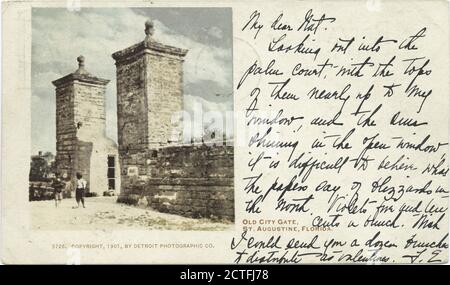 My dear Nat.
Looking out into the
palm court, with the tops
of them nearly up to my
window, and the sun
shining in the open window
it is difficult to believe what
the papers say of blizzards in
the North. Violets five and ten
cents a bunch. Wish
I could send you a dozen bunches
to distribute as valentines.
OLD CITY GATE,
ST. AUGUSTINE, FLORIDA.
5726. COPYRIGHT, 1901, BY DETROIT PHOTOGRAPHIC CO.
alamy
Image ID: 2CTFJ78
www.alamy.com